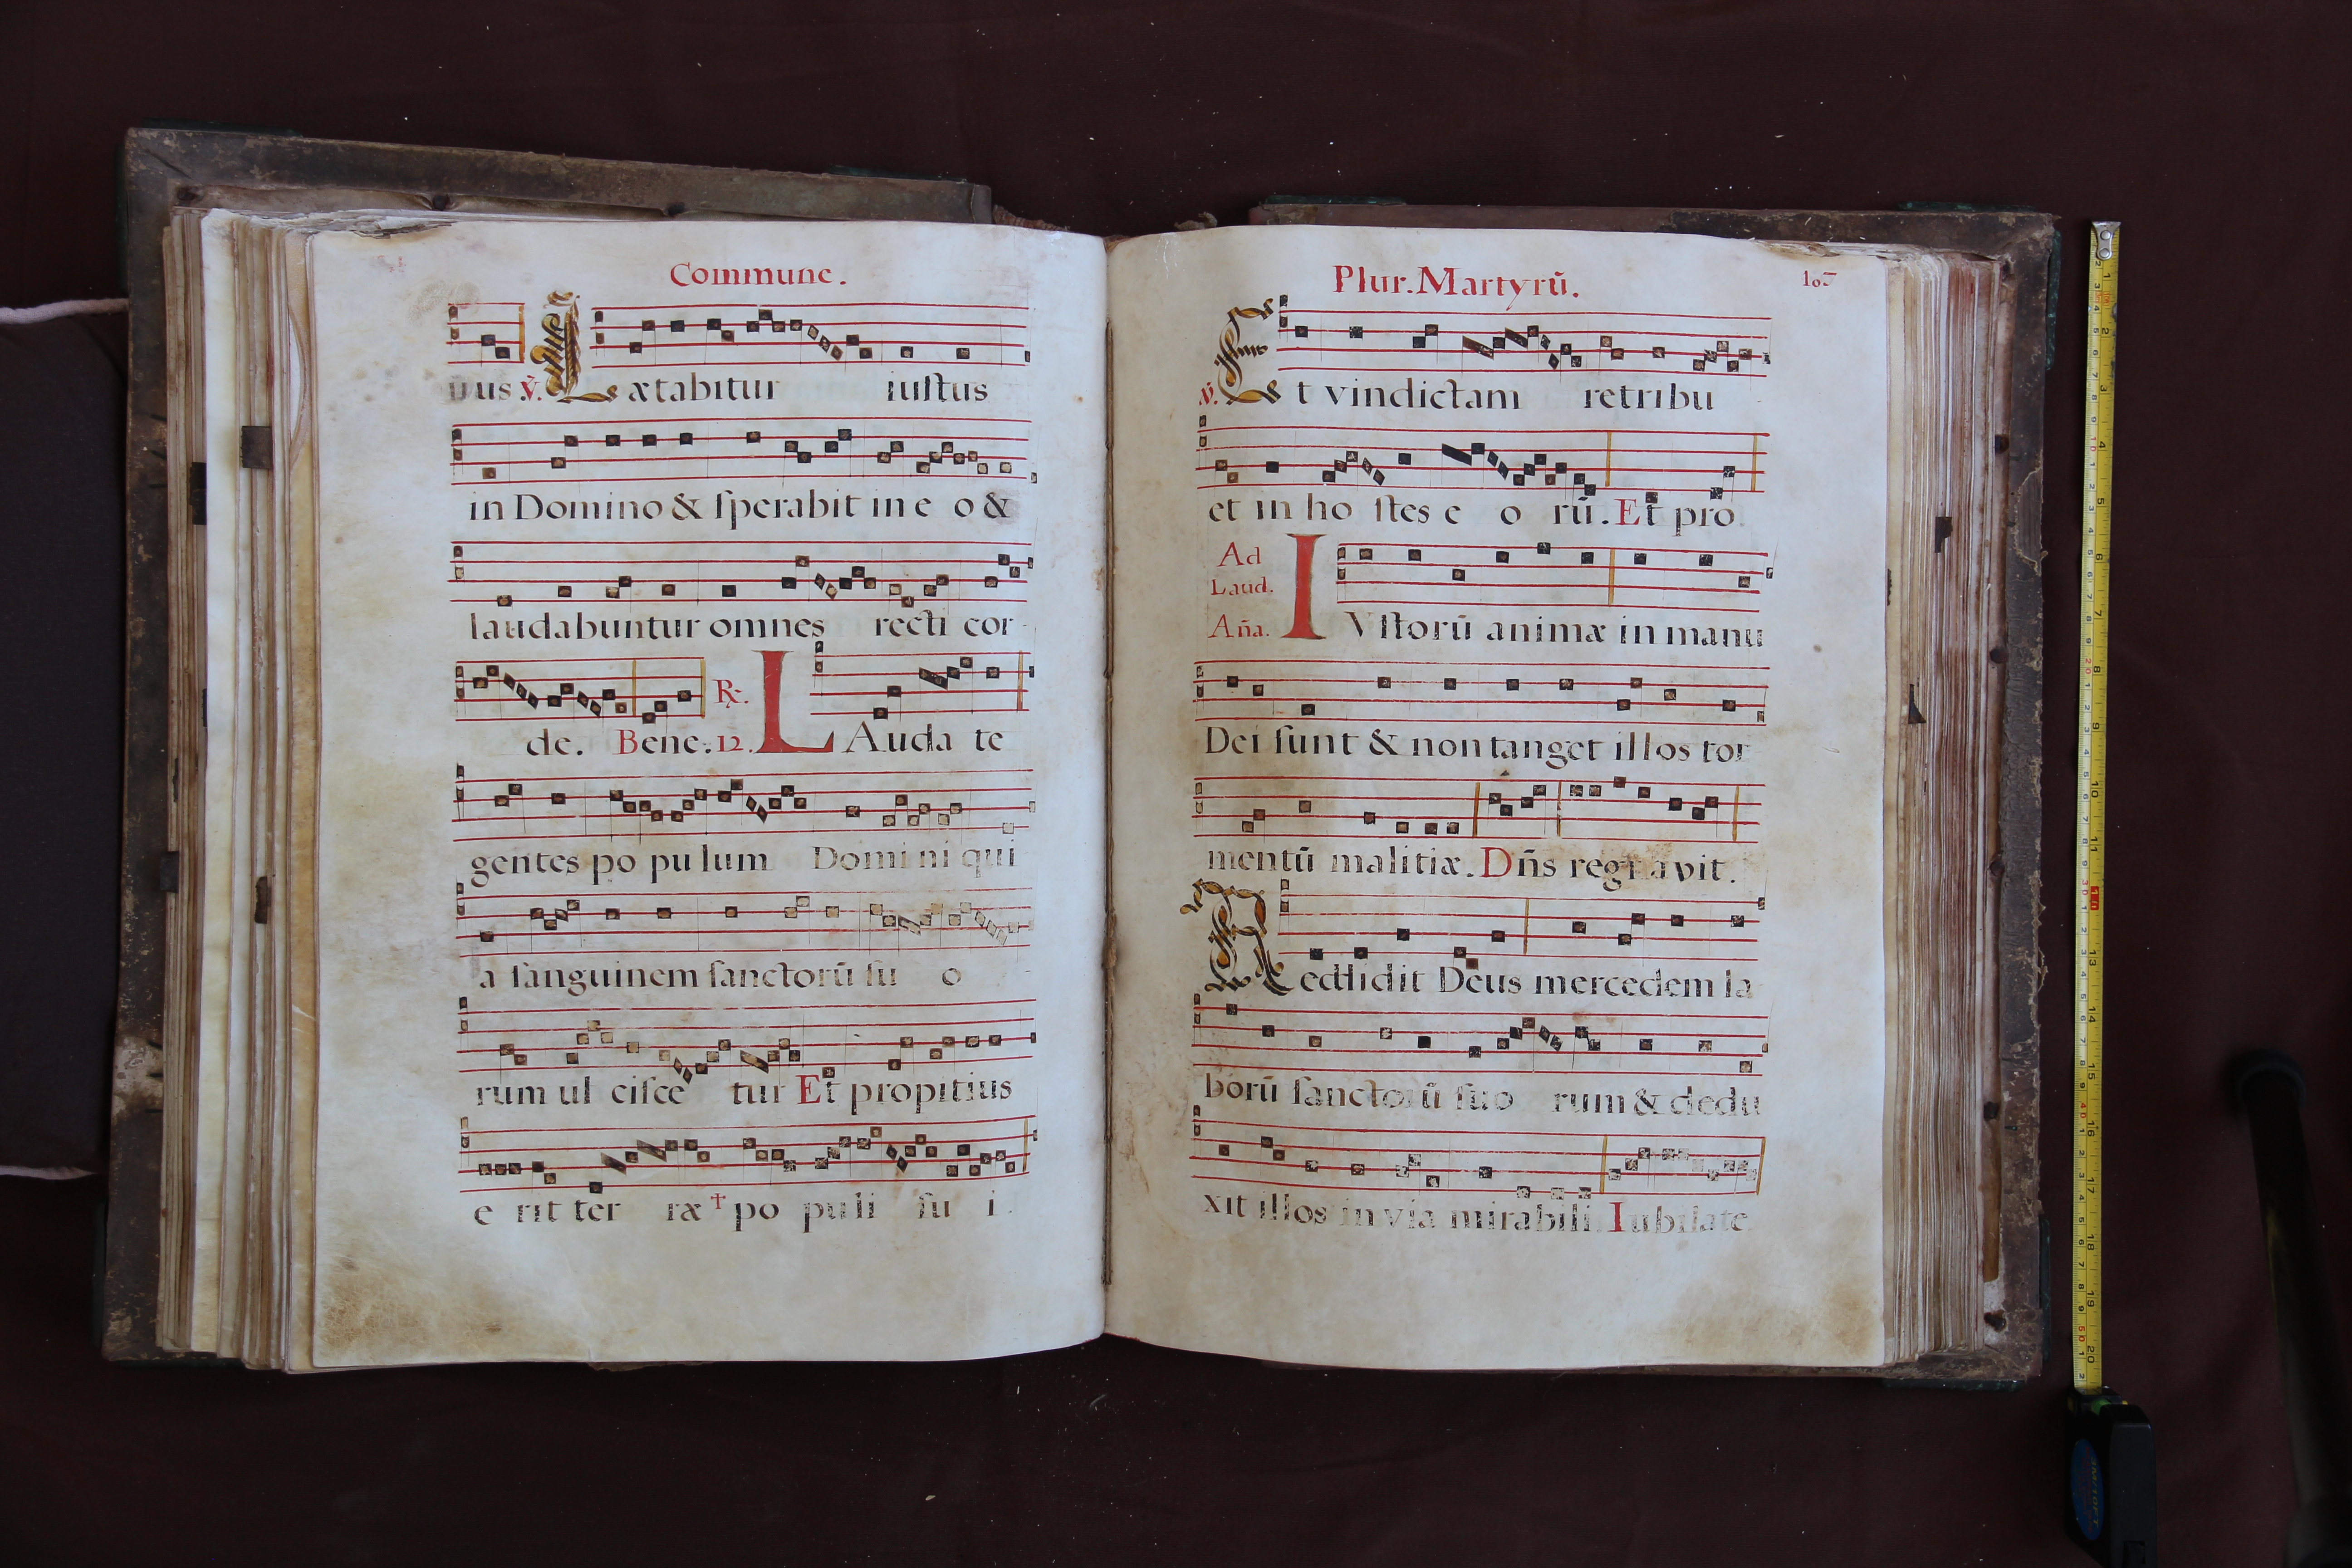 Commune.
nus ℣. Lætabitur iuſtus
in Domino & ſperabit in e o &
laudabuntur omnes recti cor
de. Bene. 12. ℞. LAuda te
gentes po pu lum Domi ni qui
a ſanguinem ſanctorū ſu o
rum ul ciſce tur Et propitius
e rit ter ræ † po puli ſu i.
Plur. Martyrū.
℣. Et vindictam retribu
et in ho ſtes e o rū. Et pro
Ad
Laud.
Aña.
IVſtorū animæ in manu
Dei ſunt & non tanget illos tor
mentū malitiæ. Dñs regnavit.
Reddidit Deus mercedem la
borū ſanctorū ſuo rum & dedu
xit illos in via mirabili. Iubilate